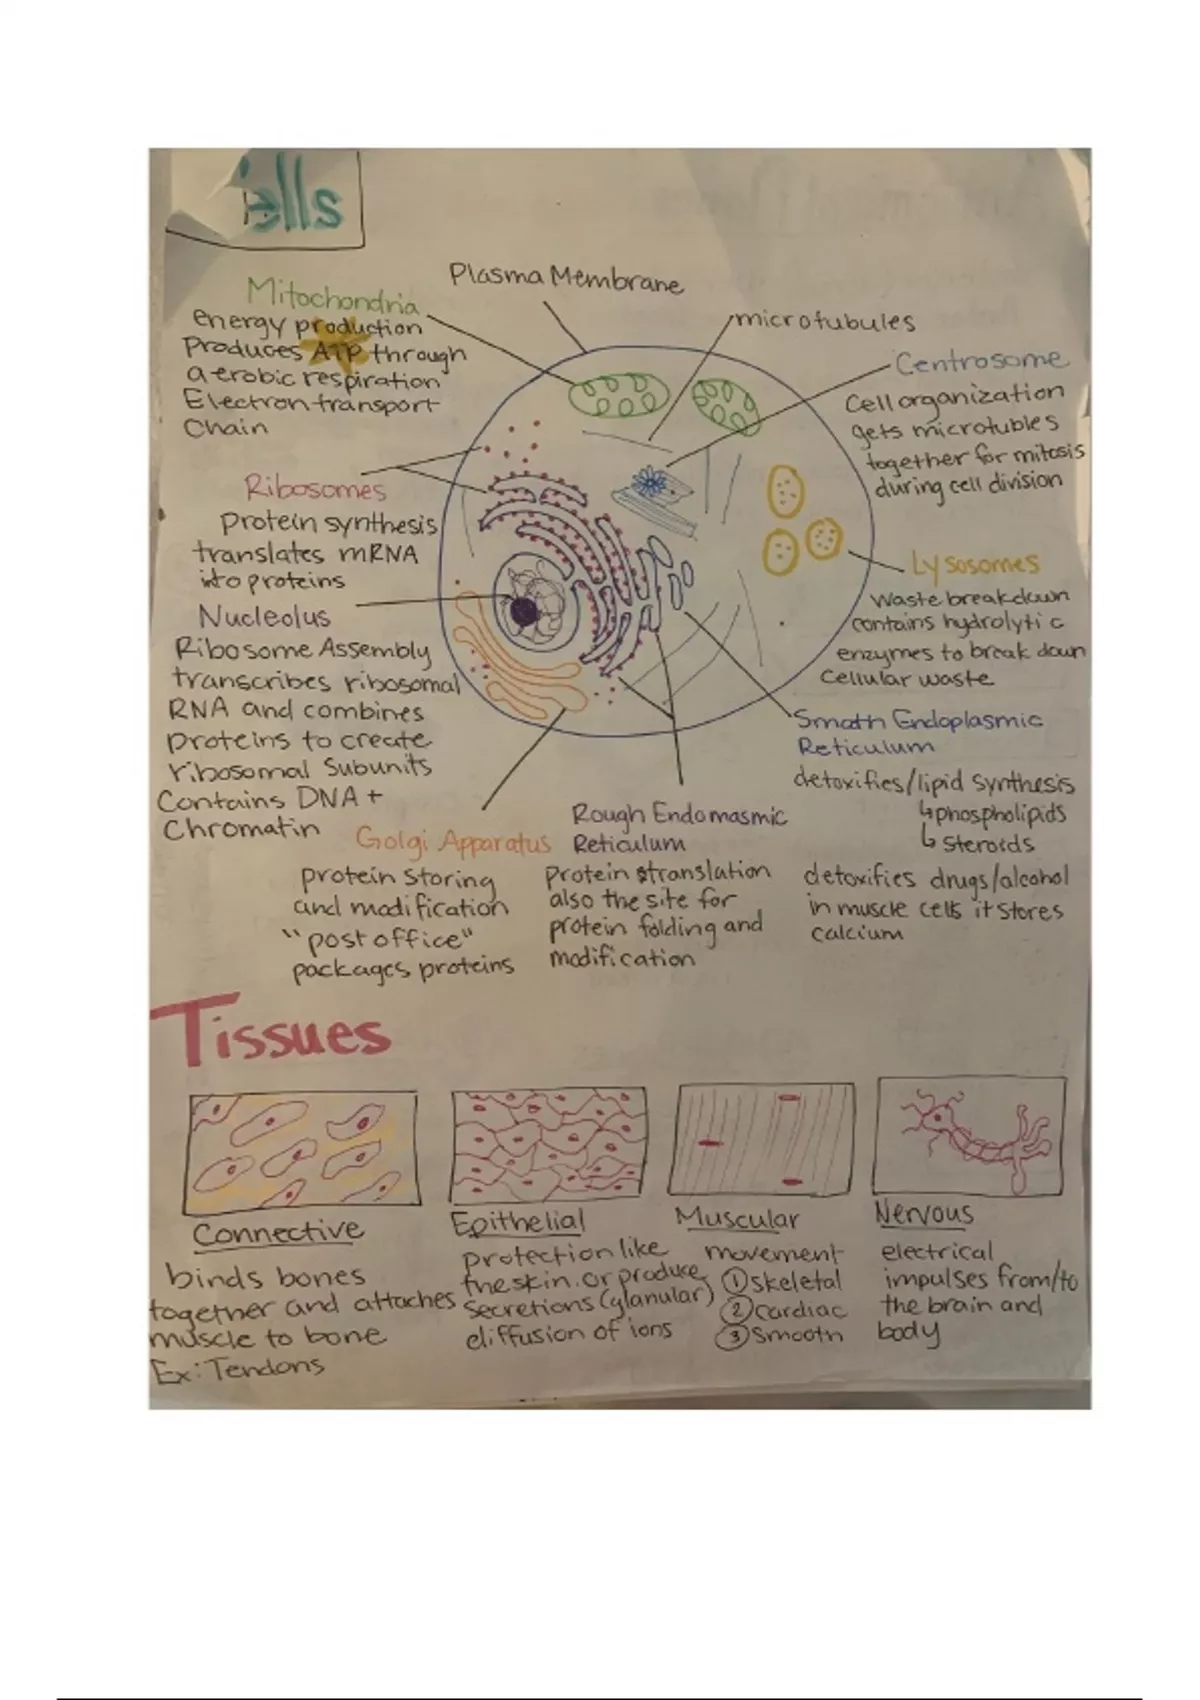 ells
Plasma Membrane
Mitochondria
energy production
Produces ATP through
aerobic respiration
Electron transport
Chain
microtubules
Centrosome
Cell organization
gets microtubles
together for mitosis
during cell division
Ribosomes
Protein synthesis
translates mRNA
into proteins
Nucleolus
Ribosome Assembly
transcribes ribosomal
RNA and combines
proteins to create
ribosomal subunits
Contains DNA +
Chromatin
Lysosomes
Waste breakdown
contains hydrolytic
enzymes to break down
Cellular waste
Smooth Endoplasmic
Reticulum
detoxifies/lipid synthesis
↳phospholipids
↳ steroids
detoxifies drugs/alcohol
in muscle cells it stores
calcium
Golgi Apparatus
protein storing
and modification
"post office"
packages proteins
Rough Endomasmic
Reticulum
Protein translation
also the site for
protein folding and
modification
Tissues
Connective
binds bones
together and attaches
muscle to bone
Ex: Tendons
Epithelial
protection like
the skin. or produce
secretions (glanular)
diffusion of ions
Muscular
movement
① skeletal
② cardiac
③ smooth
Nervous
electrical
impulses from/to
the brain and
body